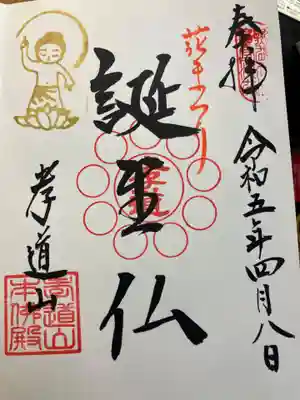 奉拝
令和五年四月八日
花まつり
誕生仏
孝道山
孝道山
本仏殿